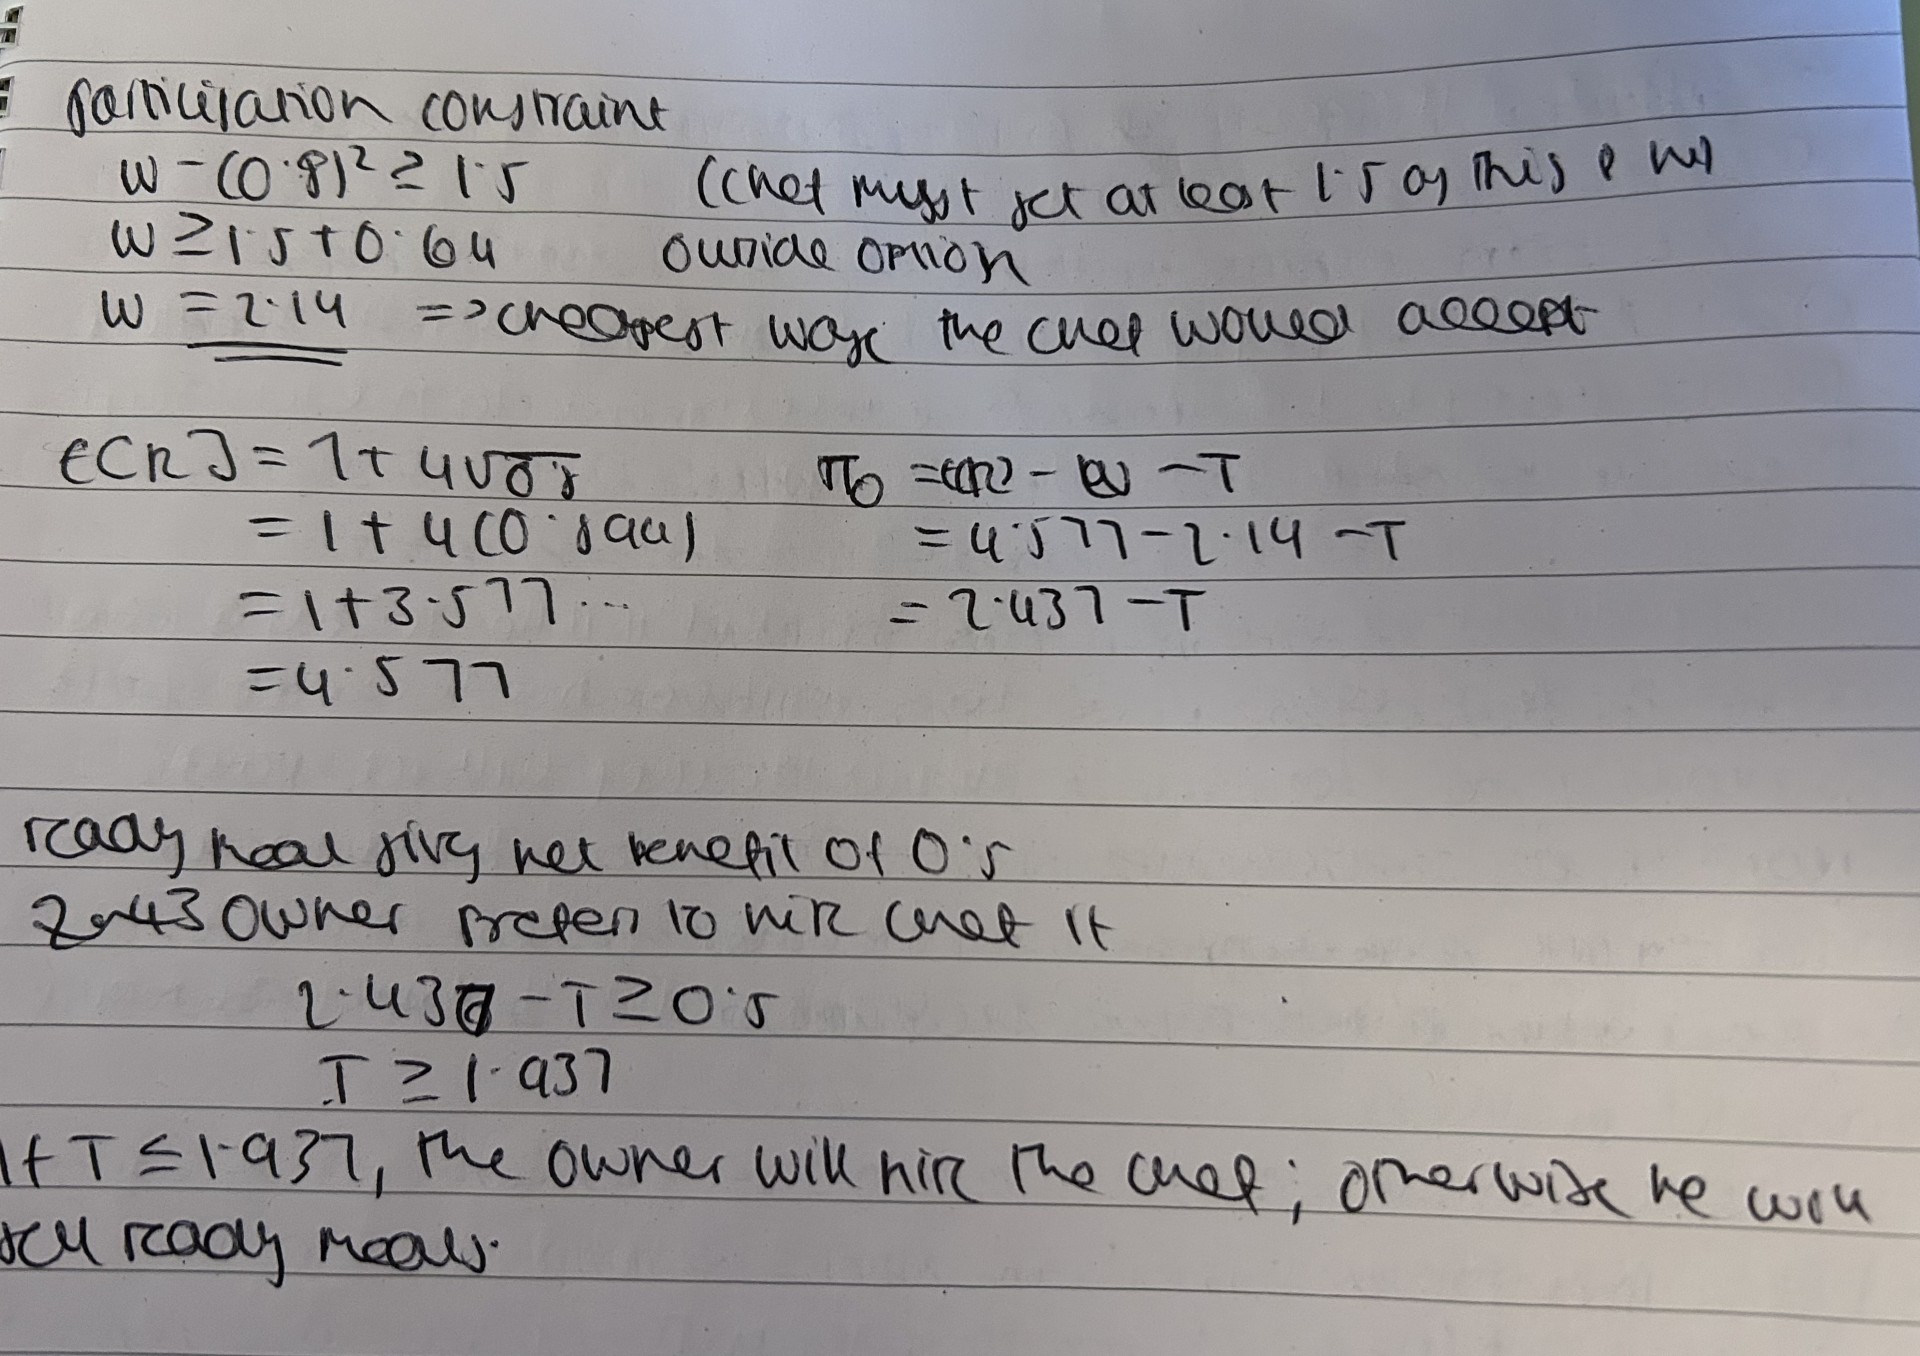 participation constraint
w - (0.8)² ≥ 1.5 (chef must get at least 1.5 as this is his
w ≥ 1.5 + 0.64 outside option
w = 2.14 => cheapest wage the chef would accept
E[R] = 1 + 4√0.8 π₀ = E(R) - w - T
= 1 + 4(0.894) = 4.577 - 2.14 - T
= 1 + 3.577... = 2.437 - T
= 4.577
ready meal gives net benefit of 0.5
owner prefers to hire chef if
2.437 - T ≥ 0.5
T ≥ 1.937
If T ≤ 1.937, the owner will hire the chef; otherwise he will
sell ready meals.